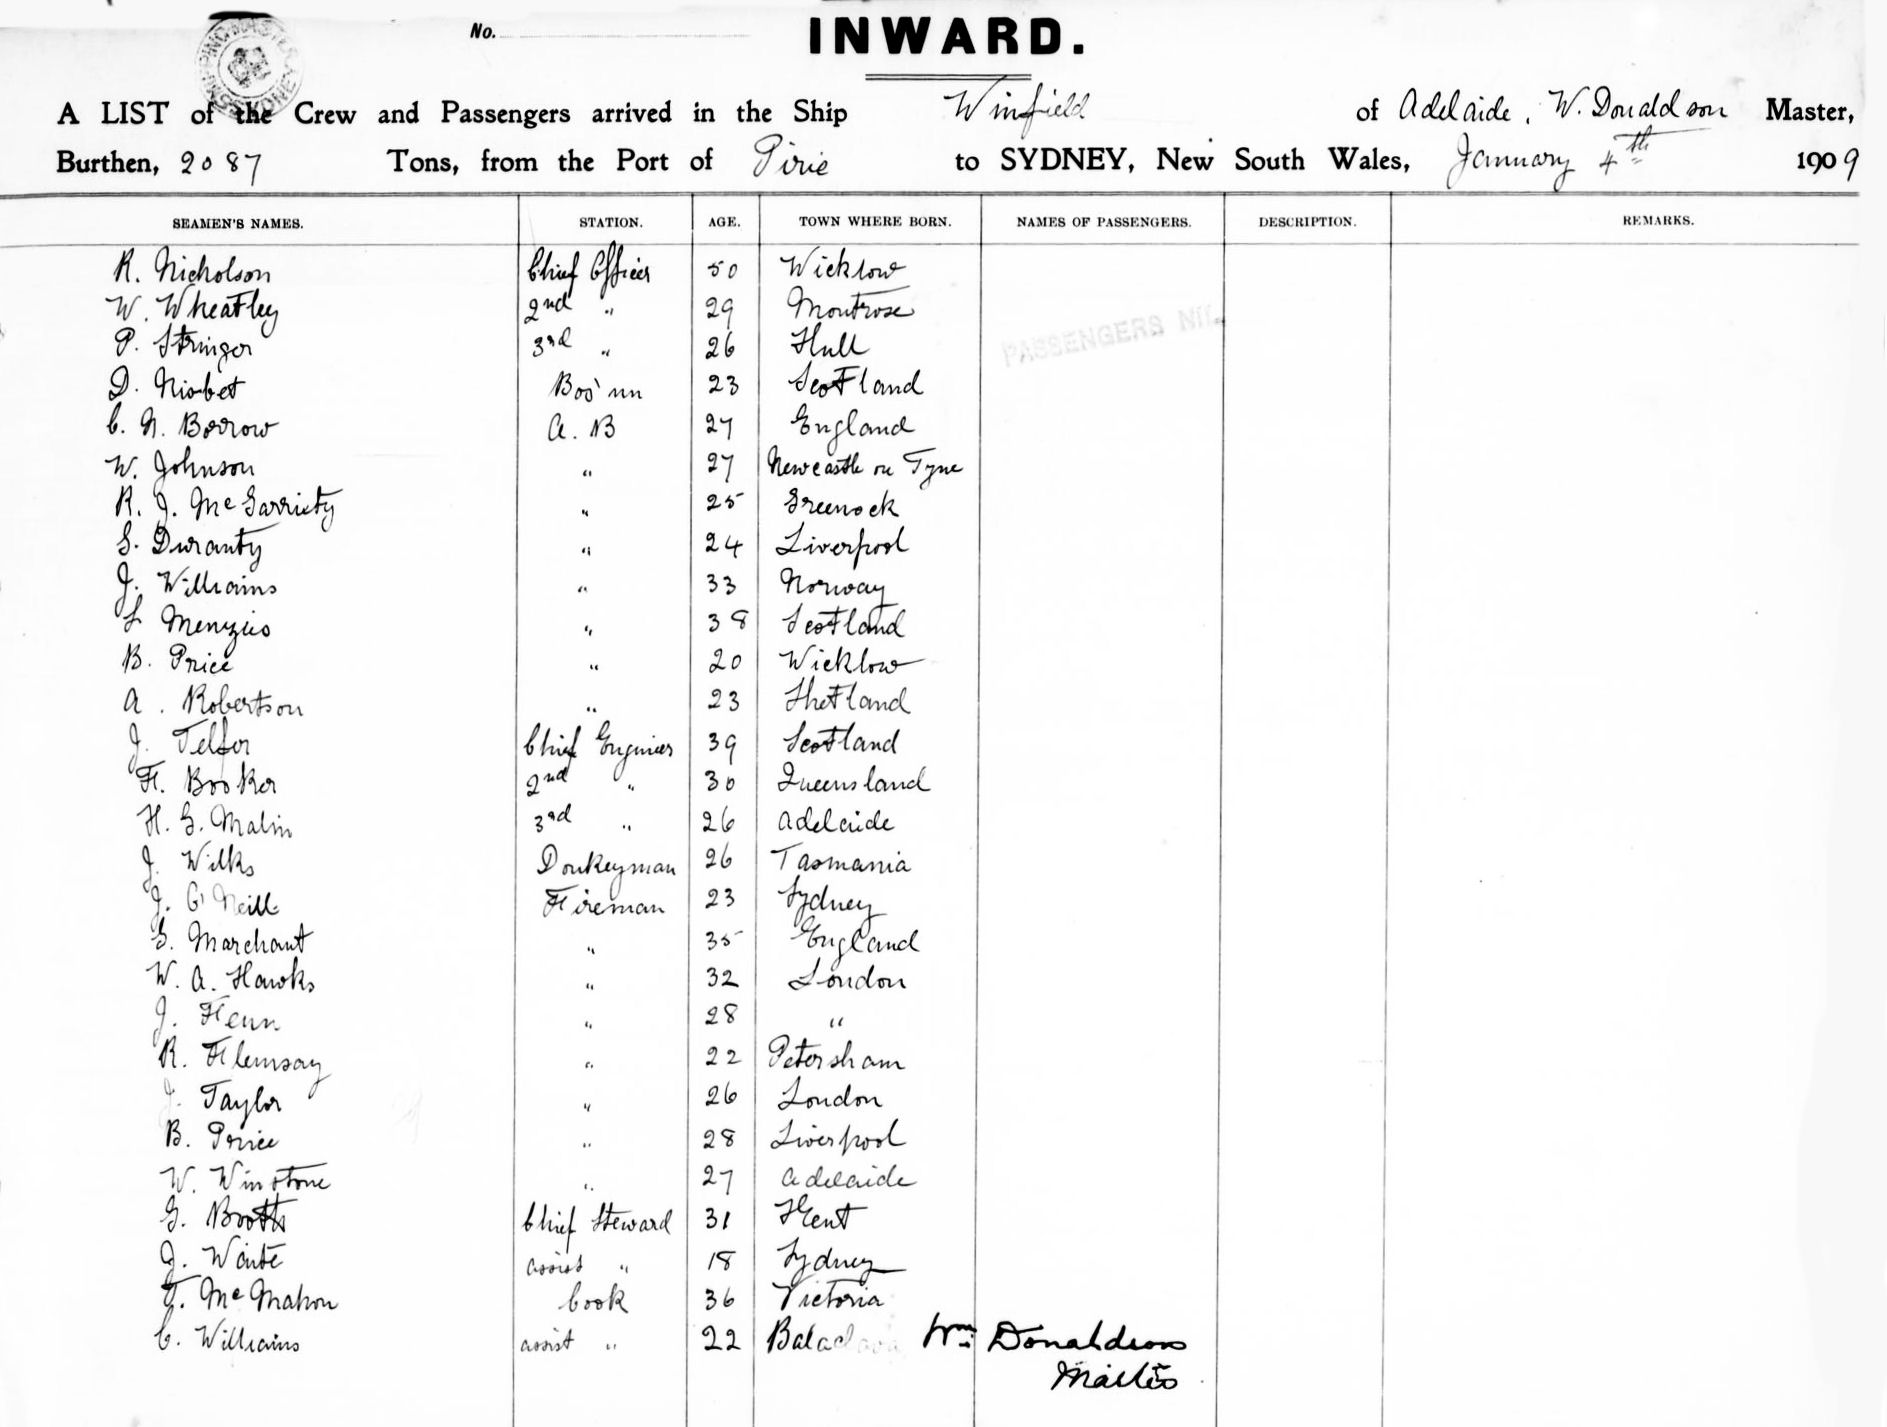 No.
INWARD.
A LIST of the Crew and Passengers arrived in the Ship Winfield of Adelaide, W. Donaldson Master,
Burthen, 2087 Tons, from the Port of Pirie to SYDNEY, New South Wales, January 4th 1909
SEAMEN'S NAMES. STATION. AGE. TOWN WHERE BORN. NAMES OF PASSENGERS. DESCRIPTION. REMARKS.
R. Nicholson Chief Officer 50 Wicklow
W. Wheatley 2nd " 29 Montrose
PASSENGERS NIL
P. Stringer 3rd " 26 Hull
D. Nisbet Bos'un 23 Scotland
C. N. Borrow A. B 27 England
W. Johnson " 27 Newcastle on Tyne
R. J. McGarriety " 25 Greenock
G. Duranty " 24 Liverpool
J. Williams " 33 Norway
L Menzies " 38 Scotland
B. Price " 20 Wicklow
A. Robertson " 23 Shetland
J. Telfer Chief Engineer 39 Scotland
F. Booker 2nd " 30 Queensland
H. G. Malin 3rd " 26 Adelaide
J. Wilks Donkeyman 26 Tasmania
J. O'Neill Fireman 23 Sydney
G. Marchant " 35 England
W. A. Hawks " 32 London
J. Fenn " 28 "
R. Flemsay " 22 Petersham
J. Taylor " 26 London
B. Price " 28 Liverpool
W. Winstone " 27 Adelaide
G. Booth Chief Steward 31 Kent
J. Waite assist " 18 Sydney
T. McMahon Cook 36 Victoria
C. Williams assist " 22 Balaclava Wm Donaldson
Master